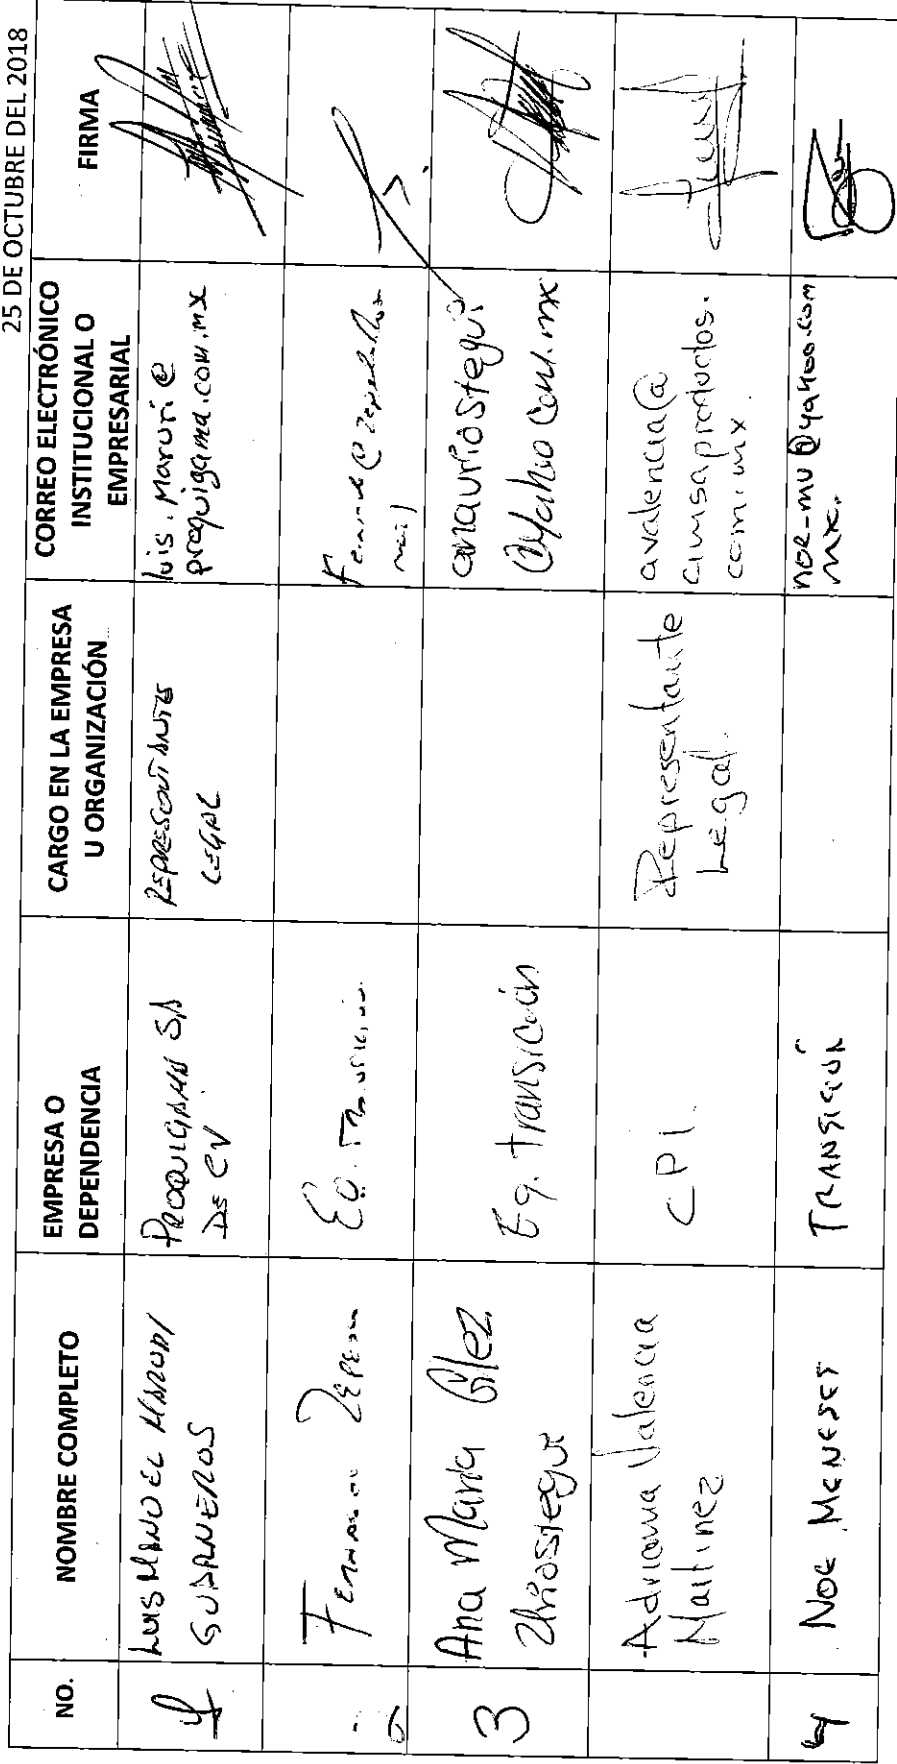 25 DE OCTUBRE DEL 2018
NO.
NOMBRE COMPLETO
EMPRESA O
DEPENDENCIA
CARGO EN LA EMPRESA
U ORGANIZACIÓN
CORREO ELECTRÓNICO
INSTITUCIONAL O
EMPRESARIAL
FIRMA
LUIS MANUEL MARURI
PROQUIGAMA SA
DE CV
REPRESENTANTE
LEGAL
luis.maruri@
proquigama.com.mx
FERNANDO ZEPEDA
EQ.
3
Ana María Glez
Uriostegui
Eq. transición
anauriostegui
@yahoo.com.mx
Adriana Valencia
Martinez
CPI.
Representante
Legal.
avalencia@
cimsaproductos.
com.mx.
4
NOE MENESES
TRANSICIÓN
noe-mv@yahoo.com
mx.